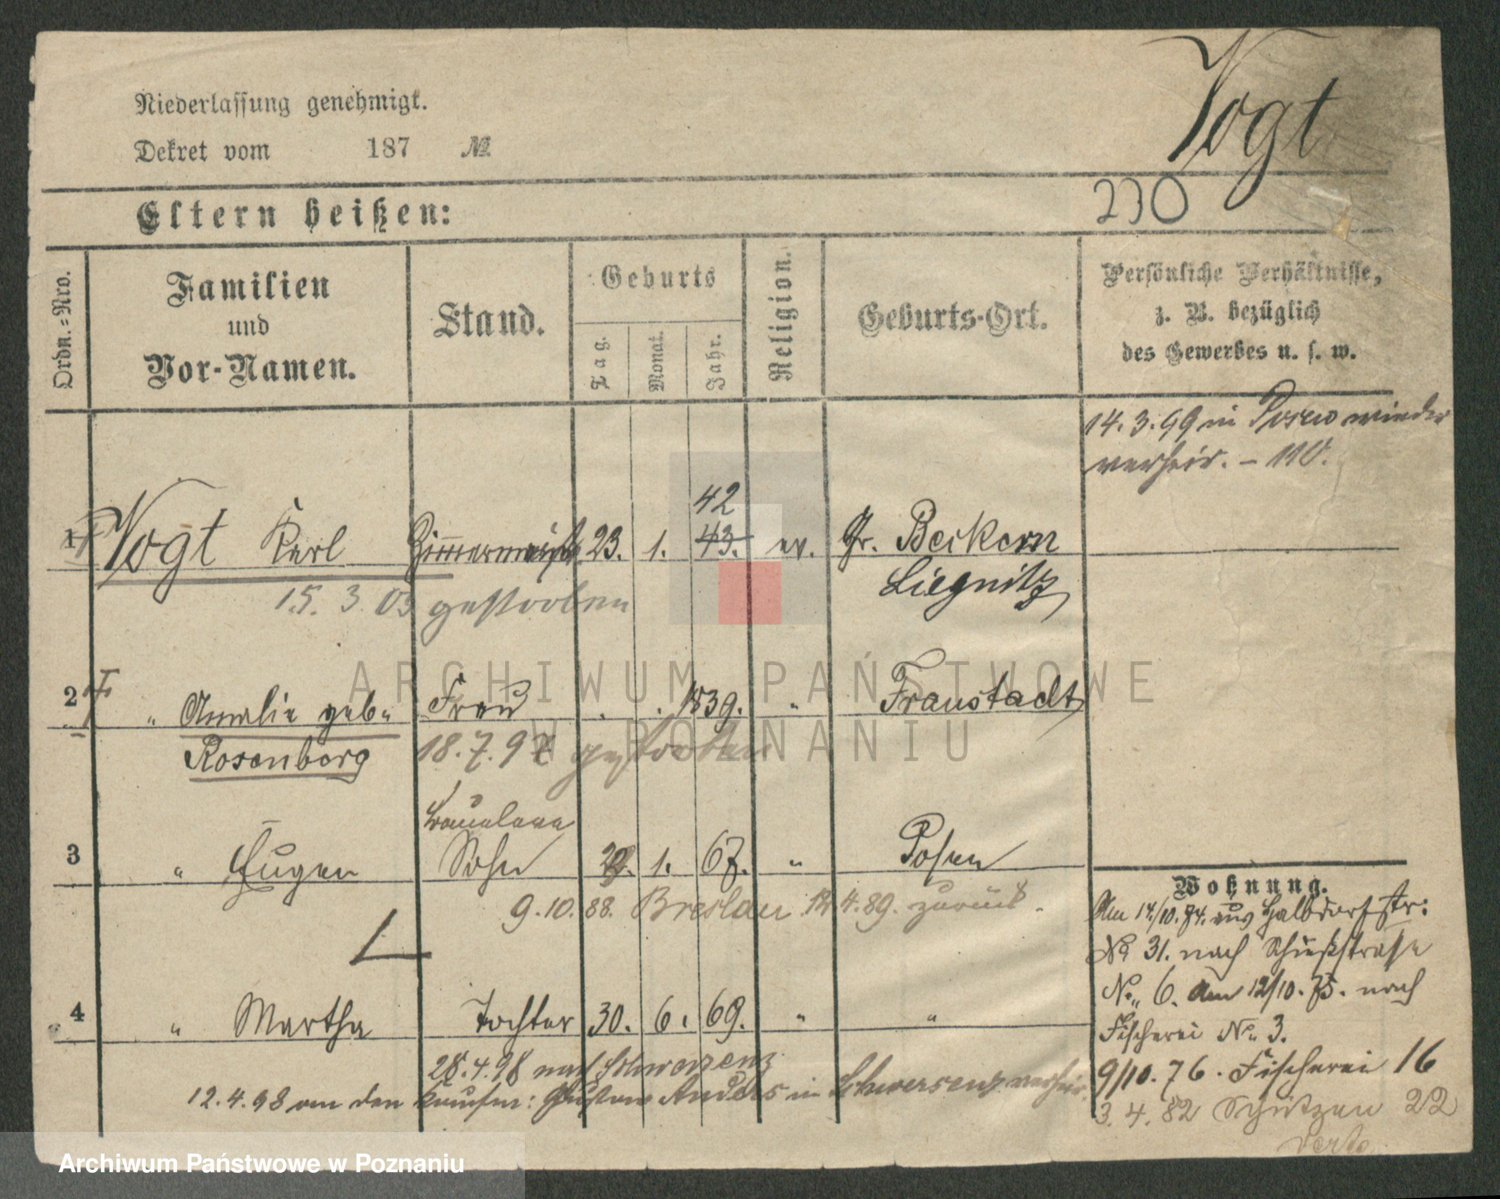 Vogt
Niederlassung genehmigt.
Dekret vom 187 №
230
Eltern heißen:
Ordn.-Nro.
Familien
und
Vor-Namen.
Stand.
Geburts
Tag.
Monat.
Jahr.
Religion.
Geburts-Ort.
Persönliche Verhältnisse,
z. B. bezüglich
des Gewerbes u. s. w.
14.3.99 in Posen wieder
verheir.
42
1 Vogt Karl Zimmermeister 23. 1. 43. ev. Gr. Beckern
Liegnitz
15. 3 03 gestorben
2 " Amalie geb. Frau 1839. " Fraustadt
Rosenberg 18.7.97 gestorben
3 " Eugen Sohn 29. 1. 67. " Posen
9.10.88. Breslau 12 4.89. zurück.
4 " Martha Tochter 30. 6. 69. " "
28.4.98 nach Schwersenz
12.4.98 an den Kaufm: Gustav Anders in Schwersenz verheir.
Wohnung.
Am 14/10.74. aus Halbdorfstr:
No 31. nach Schießstraße
No. 6. Am 12/10.75. nach
Fischerei No. 3.
9/10.76. Fischerei 16
3.4.82 Schützen 22
verte
ARCHIWUM PAŃSTWOWE
W POZNANIU
Archiwum Państwowe w Poznaniu